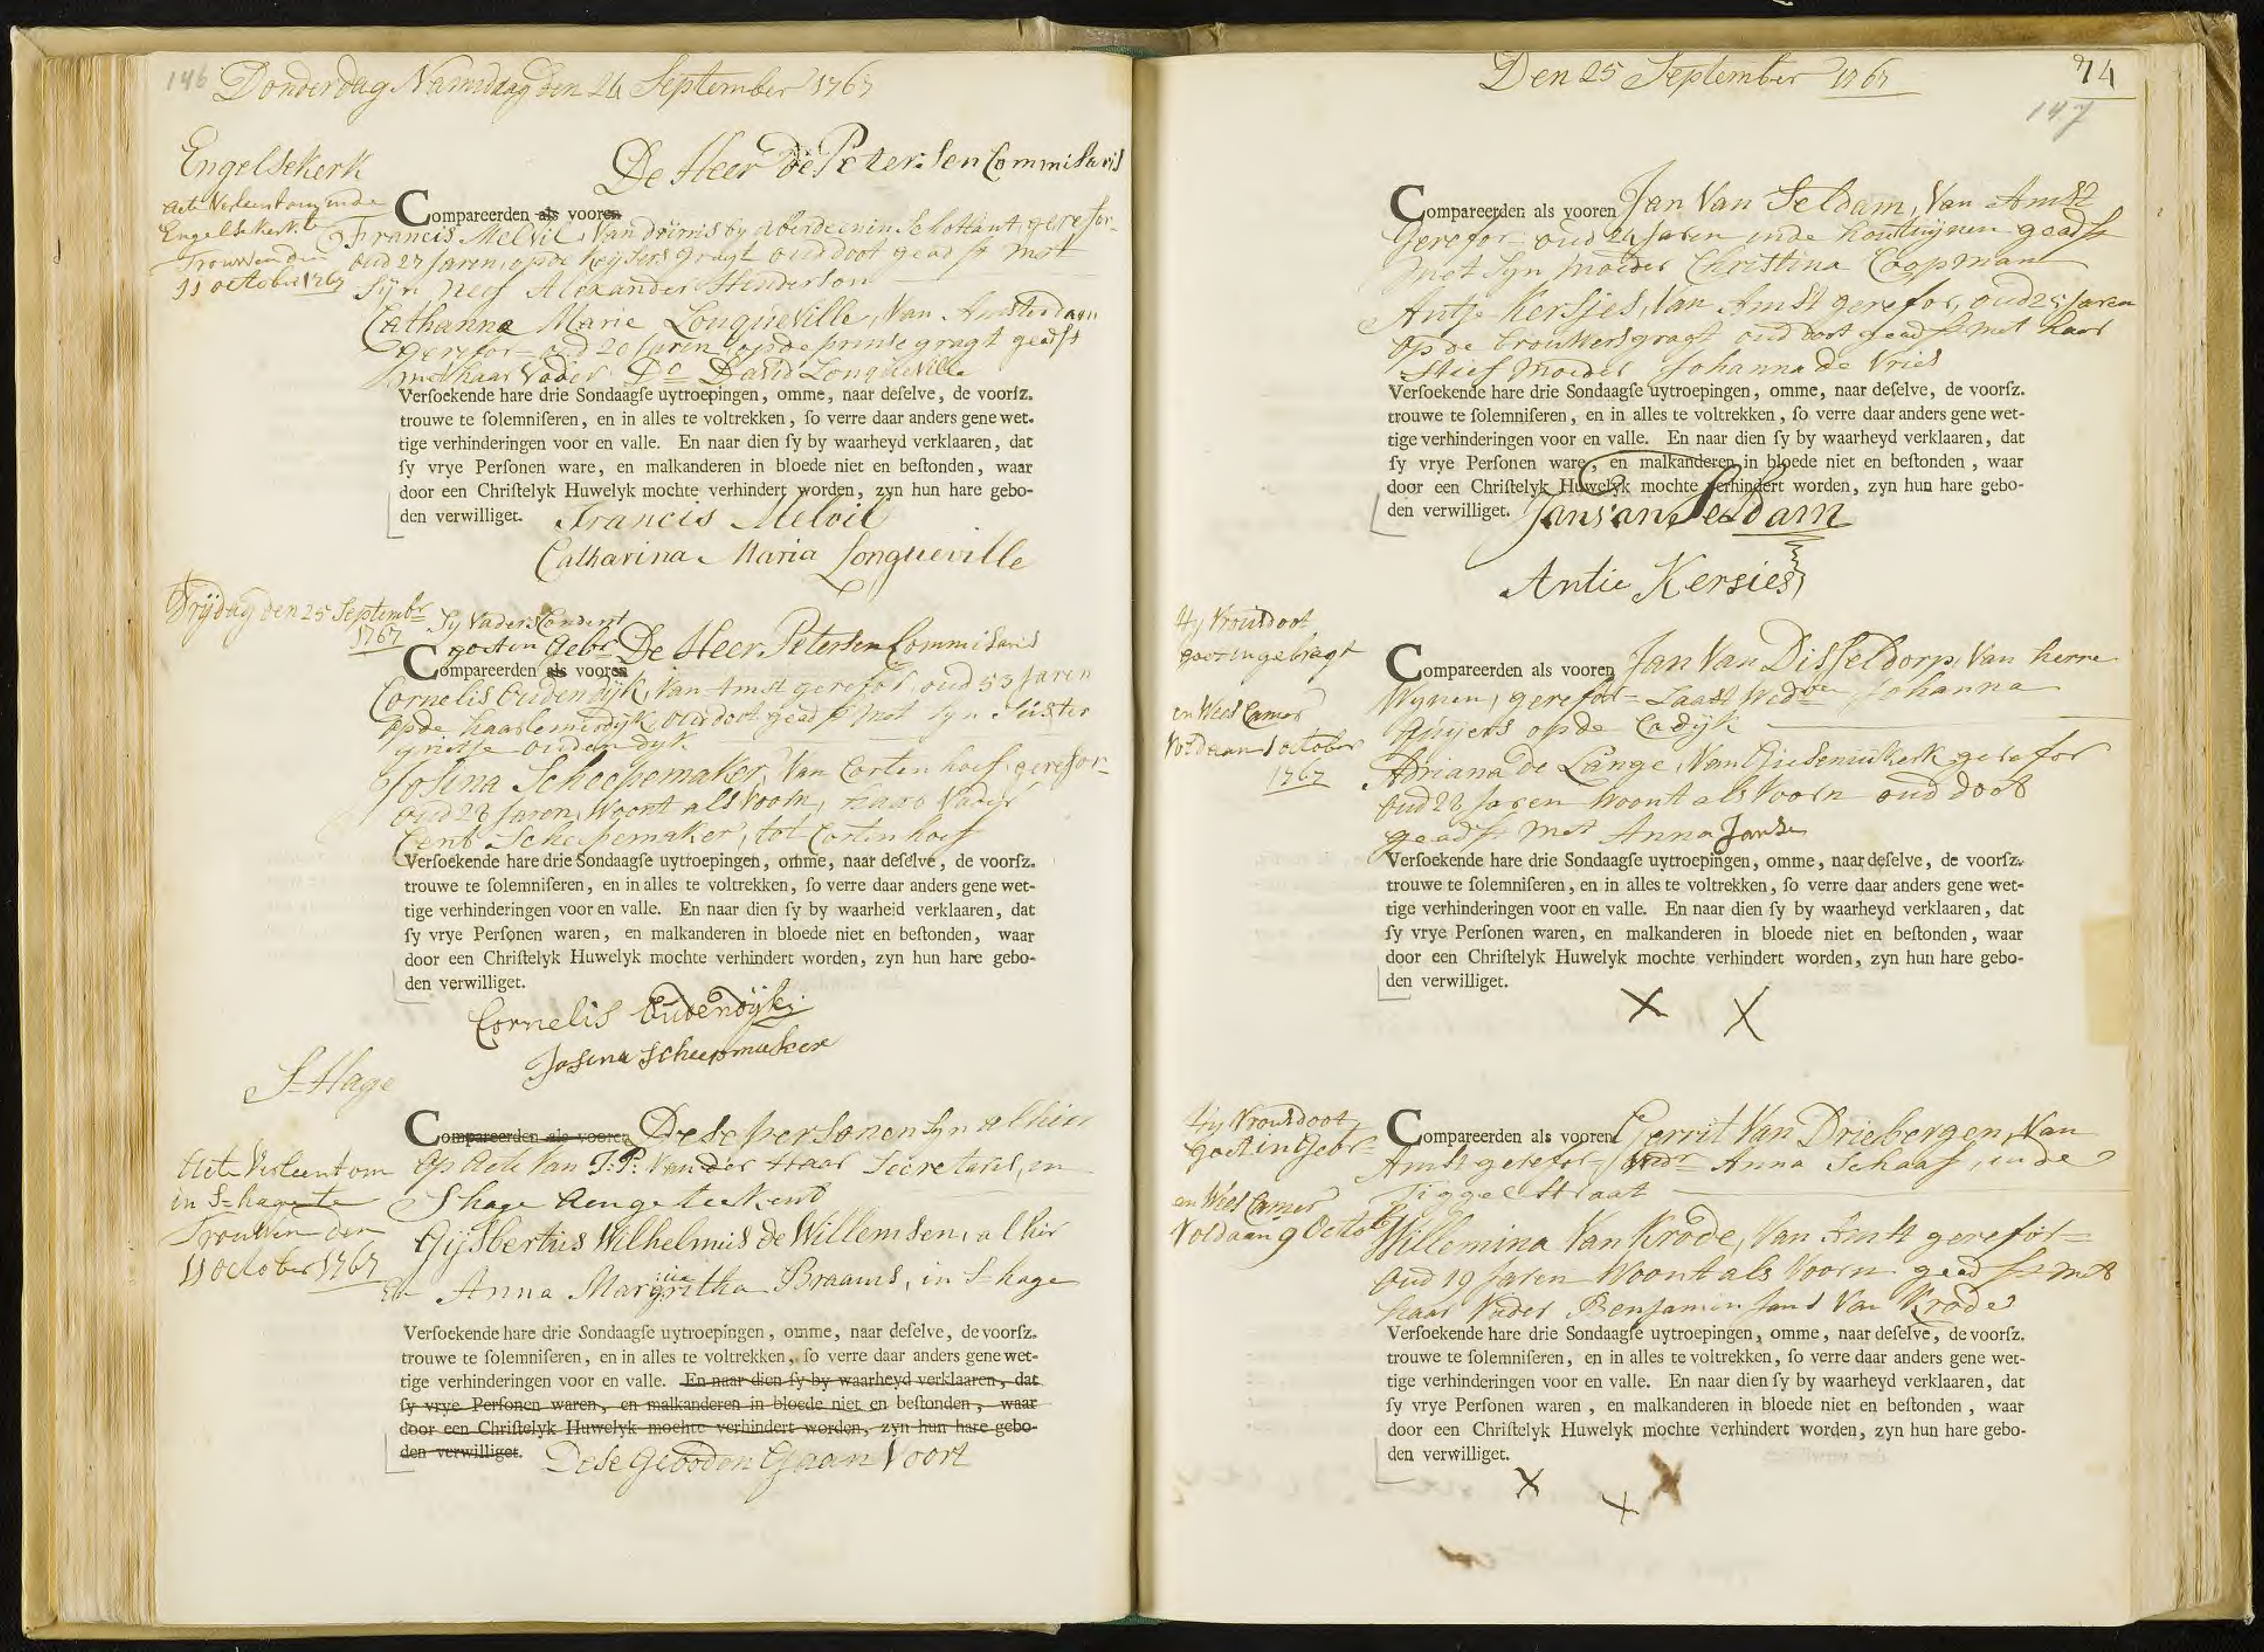 146 Donderdag Namiddag den 24 September 1767
De Heer de Petersen Commisaris
Engelsekerk
Acte Verleent om inde
Engelsekerk te
Trouwen den
11 october 1767
Compareerden als vooren
Francis Melvil, Van drimis by Aberdeen in Schotlant, gerefor-
oud 27 Jaren, op de Keysersgragt ouddoot geadst met
Syn Neef Alexander Henderson
Catharina Marie Longueville, Van Amsterdam
gerefor- oud 20 Jaren op de prinse gragt geadst
met haar Vader Do David Longueville
Verſoekende hare drie Sondaagſe uytroepingen, omme, naar deſelve, de voorſz.
trouwe te ſolemniſeren, en in alles te voltrekken, ſo verre daar anders gene wet-
tige verhinderingen voor en valle. En naar dien ſy by waarheyd verklaaren, dat
ſy vrye Perſonen ware, en malkanderen in bloede niet en beſtonden, waar
door een Chriſtelyk Huwelyk mochte verhindert worden, zyn hun hare gebo-
den verwilliget. Francis Melvil
Catharina Maria Longueville
Vrijdag den 25 Septembr
1767
Sy Vaders Consent
goet in Gebr De Heer Petersen Commisaris
Compareerden als vooren
Cornelis Oudendijk, Van Amst gerefor, oud 53 Jaren
op de haarlemerdijk, ouddoot geadst met syn Suster
grietje oudendyk
Josina Scheepemaker, Van Cortenhoef, gerefor-
oud 28 Jaren, Woont als Voorn, haar Vader
Cent Scheepemaker, tot Cortenhoef
Verſoekende hare drie Sondaagſe uytroepingen, omme, naar deſelve, de voorſz.
trouwe te ſolemniſeren, en in alles te voltrekken, ſo verre daar anders gene wet-
tige verhinderingen voor en valle. En naar dien ſy by waarheid verklaaren, dat
ſy vrye Perſonen waren, en malkanderen in bloede niet en beſtonden, waar
door een Chriſtelyk Huwelyk mochte verhindert worden, zyn hun hare gebo-
den verwilliget.
Cornelis Oudendijk
Josina Scheepmaker
S-Hage
Acte Verleent om
in S-hage te
Trouwen den
11 october 1767
Compareerden als vooren Dese personen Syn alhier
op Acte Van J: P: Van der Haar Secretaris, in
S hage Aengeteekent
Gijsbertus Wilhelmus de Willemsen, alhier
En Anna Margritha Braams, in S-hage
Verſoekende hare drie Sondaagſe uytroepingen, omme, naar deſelve, de voorſz.
trouwe te ſolemniſeren, en in alles te voltrekken, ſo verre daar anders gene wet-
tige verhinderingen voor en valle. En naar dien ſy by waarheyd verklaaren, dat
ſy vrye Perſonen waren, en malkanderen in bloede niet en beſtonden, waar
door een Chriſtelyk Huwelyk mochte verhindert worden, zyn hun hare gebo-
den verwilliget. Dese Gebooden Gaan Voort
Den 25 September 1767
74
147
Compareerden als vooren Jan Van Seldam, Van Amst
gerefor- oud 24 Jaren inde houttuijnen geadst
met Syn moeder Christina Coopman
Antje Kersjes, Van Amst gerefor, oud 25 Jaren
op de brouwersgragt oud doot geadst met haar
Stiefmoeder Johanna de Vries
Verſoekende hare drie Sondaagſe uytroepingen, omme, naar deſelve, de voorſz.
trouwe te ſolemniſeren, en in alles te voltrekken, ſo verre daar anders gene wet-
tige verhinderingen voor en valle. En naar dien ſy by waarheyd verklaaren, dat
ſy vrye Perſonen ware, en malkanderen in bloede niet en beſtonden, waar
door een Chriſtelyk Huwelyk mochte verhindert worden, zyn hun hare gebo-
den verwilliget. Jan van Seldam
Antie Kersies
Hy Vrousdoot
goet ingebragt
en Wees Camer
Voldaan 1 october
1767
Compareerden als vooren Jan Van Disseldorp, Van herre
Wynen, gerefor- Laast Wedr Van Johanna
op de Cadijk
Adriana de Lange, Van Giesenniekerk gerefor
oud 28 Jaren woont als Voorn oud doot
geadst met Anna Janse
Verſoekende hare drie Sondaagſe uytroepingen, omme, naar deſelve, de voorſz.
trouwe te ſolemniſeren, en in alles te voltrekken, ſo verre daar anders gene wet-
tige verhinderingen voor en valle. En naar dien ſy by waarheyd verklaaren, dat
ſy vrye Perſonen waren, en malkanderen in bloede niet en beſtonden, waar
door een Chriſtelyk Huwelyk mochte verhindert worden, zyn hun hare gebo-
den verwilliget.
X X
Hy Vrousdoot
goet in Gebr-
en Wees Camer
Voldaan 9 Octob
Compareerden als vooren Gerrit Van Driebergen, Van
Amst gerefor- Wedr Anna Schaaf, in de
Tiggelstraat
Willemina Van Krode, Van Amst gerefor-
oud 19 Jaren Woont als Voorn geadst met
haar Vader Benjamin Jans Van Krode
Verſoekende hare drie Sondaagſe uytroepingen, omme, naar deſelve, de voorſz.
trouwe te ſolemniſeren, en in alles te voltrekken, ſo verre daar anders gene wet-
tige verhinderingen voor en valle. En naar dien ſy by waarheyd verklaaren, dat
ſy vrye Perſonen waren, en malkanderen in bloede niet en beſtonden, waar
door een Chriſtelyk Huwelyk mochte verhindert worden, zyn hun hare gebo-
den verwilliget.
X X